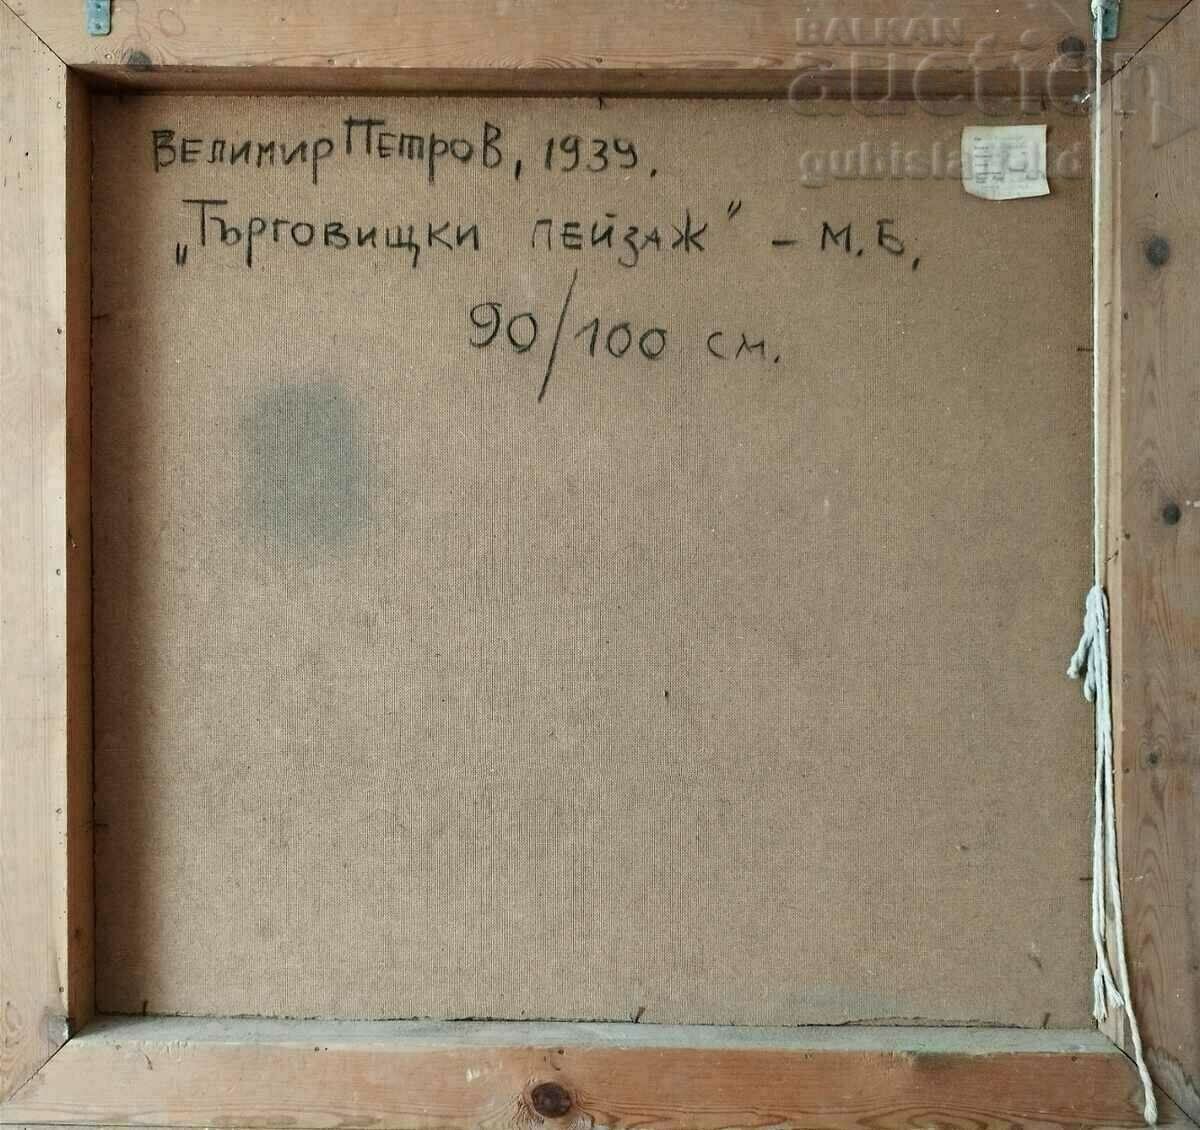 BALKAN
auction
Велимир Петров, 1939.
„Търговищки пейзаж" - М.Б.
90/100 см.